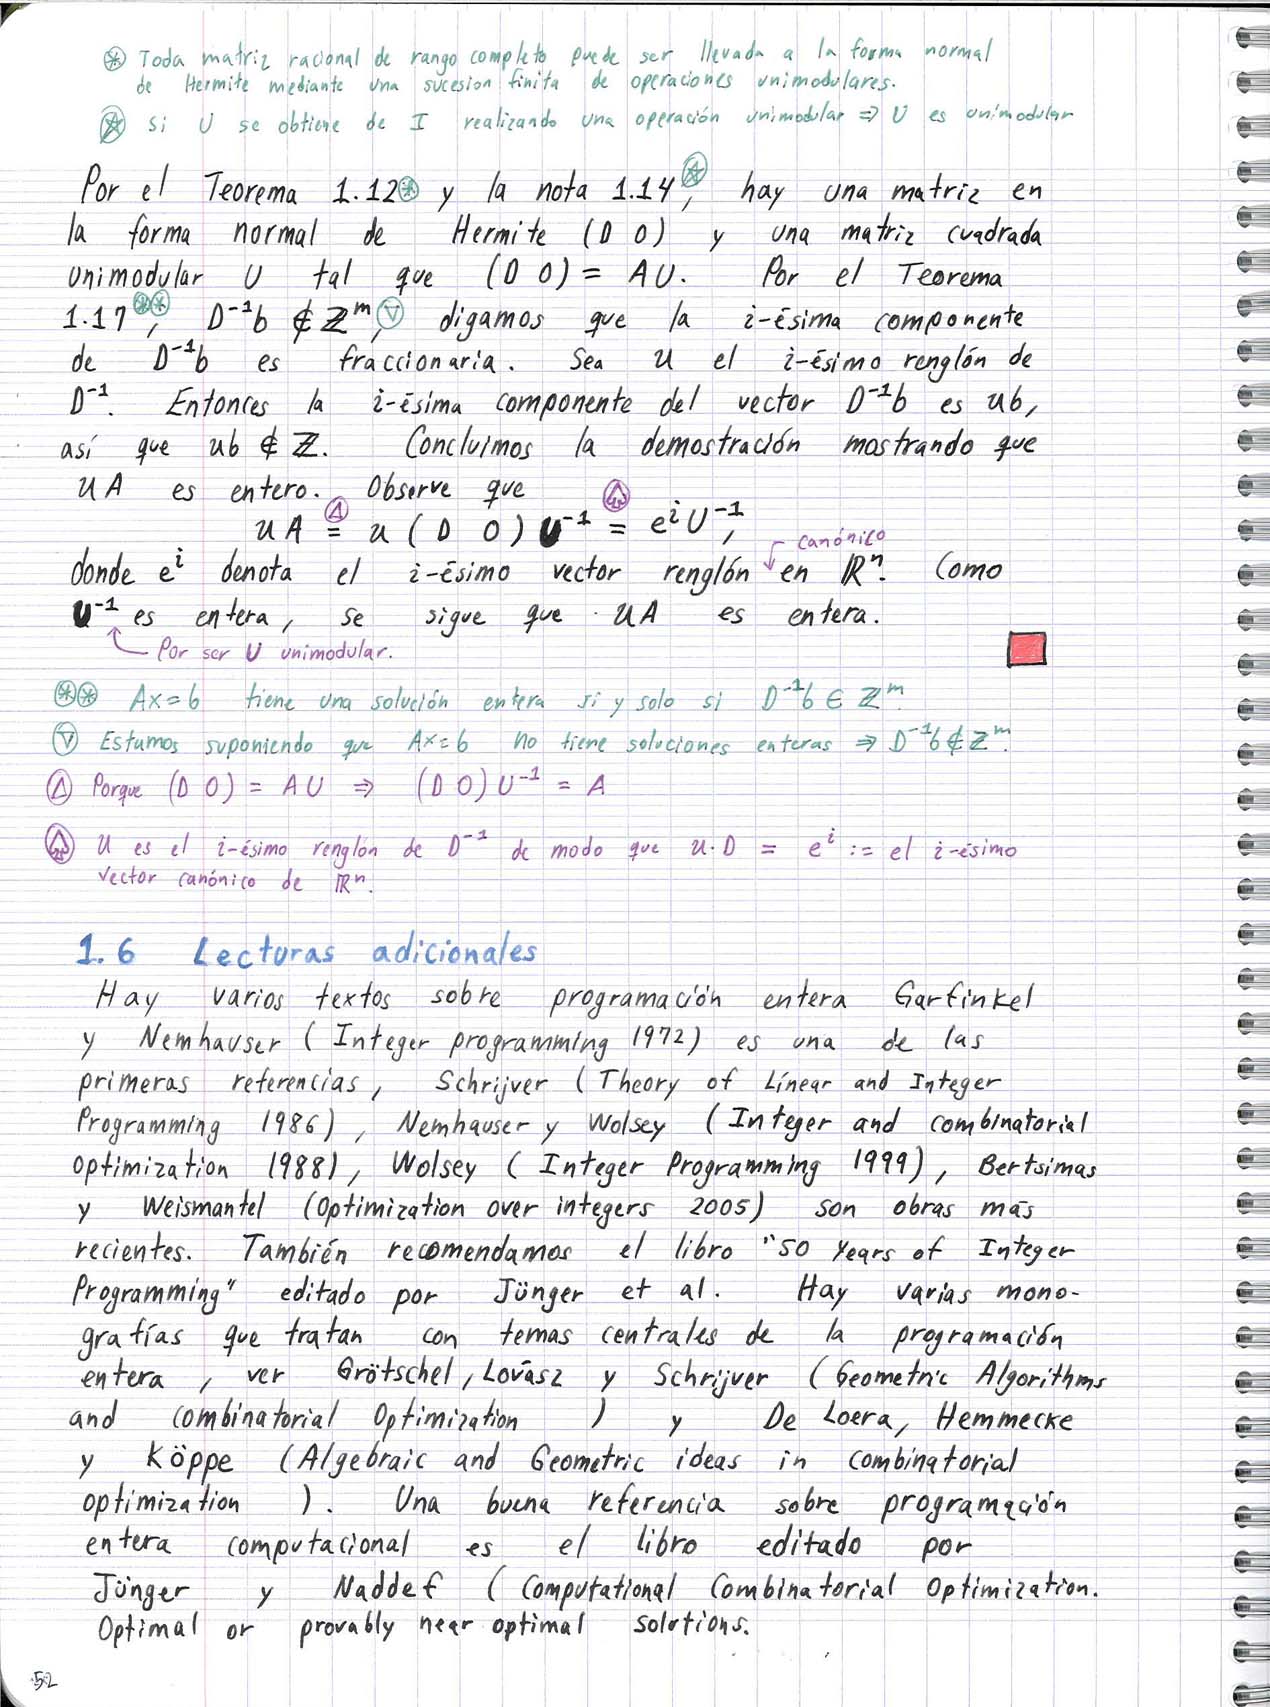 ⊛ Toda matriz racional de rango completo puede ser llevada a la forma normal
de Hermite mediante una sucesion finita de operaciones unimodulares.
✪ Si U se obtiene de I realizando una operación unimodular ⇒ U es unimodular
Por el Teorema 1.12⊛ y la nota 1.14✪, hay una matriz en
la forma normal de Hermite (D 0) y una matriz cuadrada
unimodular U tal que (D 0) = AU. Por el Teorema
1.17⊛⊛, D⁻¹b ∉ ℤᵐ,▽ digamos que la i-ésima componente
de D⁻¹b es fraccionaria. Sea u el i-ésimo renglón de
D⁻¹. Entonces la i-ésima componente del vector D⁻¹b es ub,
así que ub ∉ ℤ. Concluimos la demostración mostrando que
uA es entero. Observe que
uA =△ u (D 0) U⁻¹ =♤ eⁱU⁻¹,
canónico
donde eⁱ denota el i-ésimo vector renglón en ℝⁿ. Como
U⁻¹ es entera, se sigue que uA es entera.
Por ser U unimodular.
⊛⊛ Ax=b tiene una solución entera si y solo si D⁻¹b ∈ ℤᵐ.
▽ Estamos suponiendo que Ax=b no tiene soluciones enteras ⇒ D⁻¹b ∉ ℤᵐ.
△ Porque (D 0) = AU ⇒ (D 0)U⁻¹ = A
♤ u es el i-ésimo renglón de D⁻¹ de modo que u·D = eⁱ := el i-ésimo
vector canónico de ℝⁿ.
1.6 Lecturas adicionales
Hay varios textos sobre programación entera Garfinkel
y Nemhauser (Integer programming 1972) es una de las
primeras referencias, Schrijver (Theory of Linear and Integer
Programming 1986), Nemhauser y Wolsey (Integer and combinatorial
optimization 1988), Wolsey (Integer Programming 1999), Bertsimas
y Weismantel (Optimization over integers 2005) son obras más
recientes. También recomendamos el libro "50 Years of Integer
Programming" editado por Jünger et al. Hay varias mono-
grafías que tratan con temas centrales de la programación
entera, ver Grötschel, Lovász y Schrijver (Geometric Algorithms
and Combinatorial Optimization ) y De Loera, Hemmecke
y Köppe (Algebraic and Geometric ideas in combinatorial
optimization ). Una buena referencia sobre programación
entera computacional es el libro editado por
Jünger y Naddef (Computational Combinatorial Optimization.
Optimal or provably near optimal solutions.
52